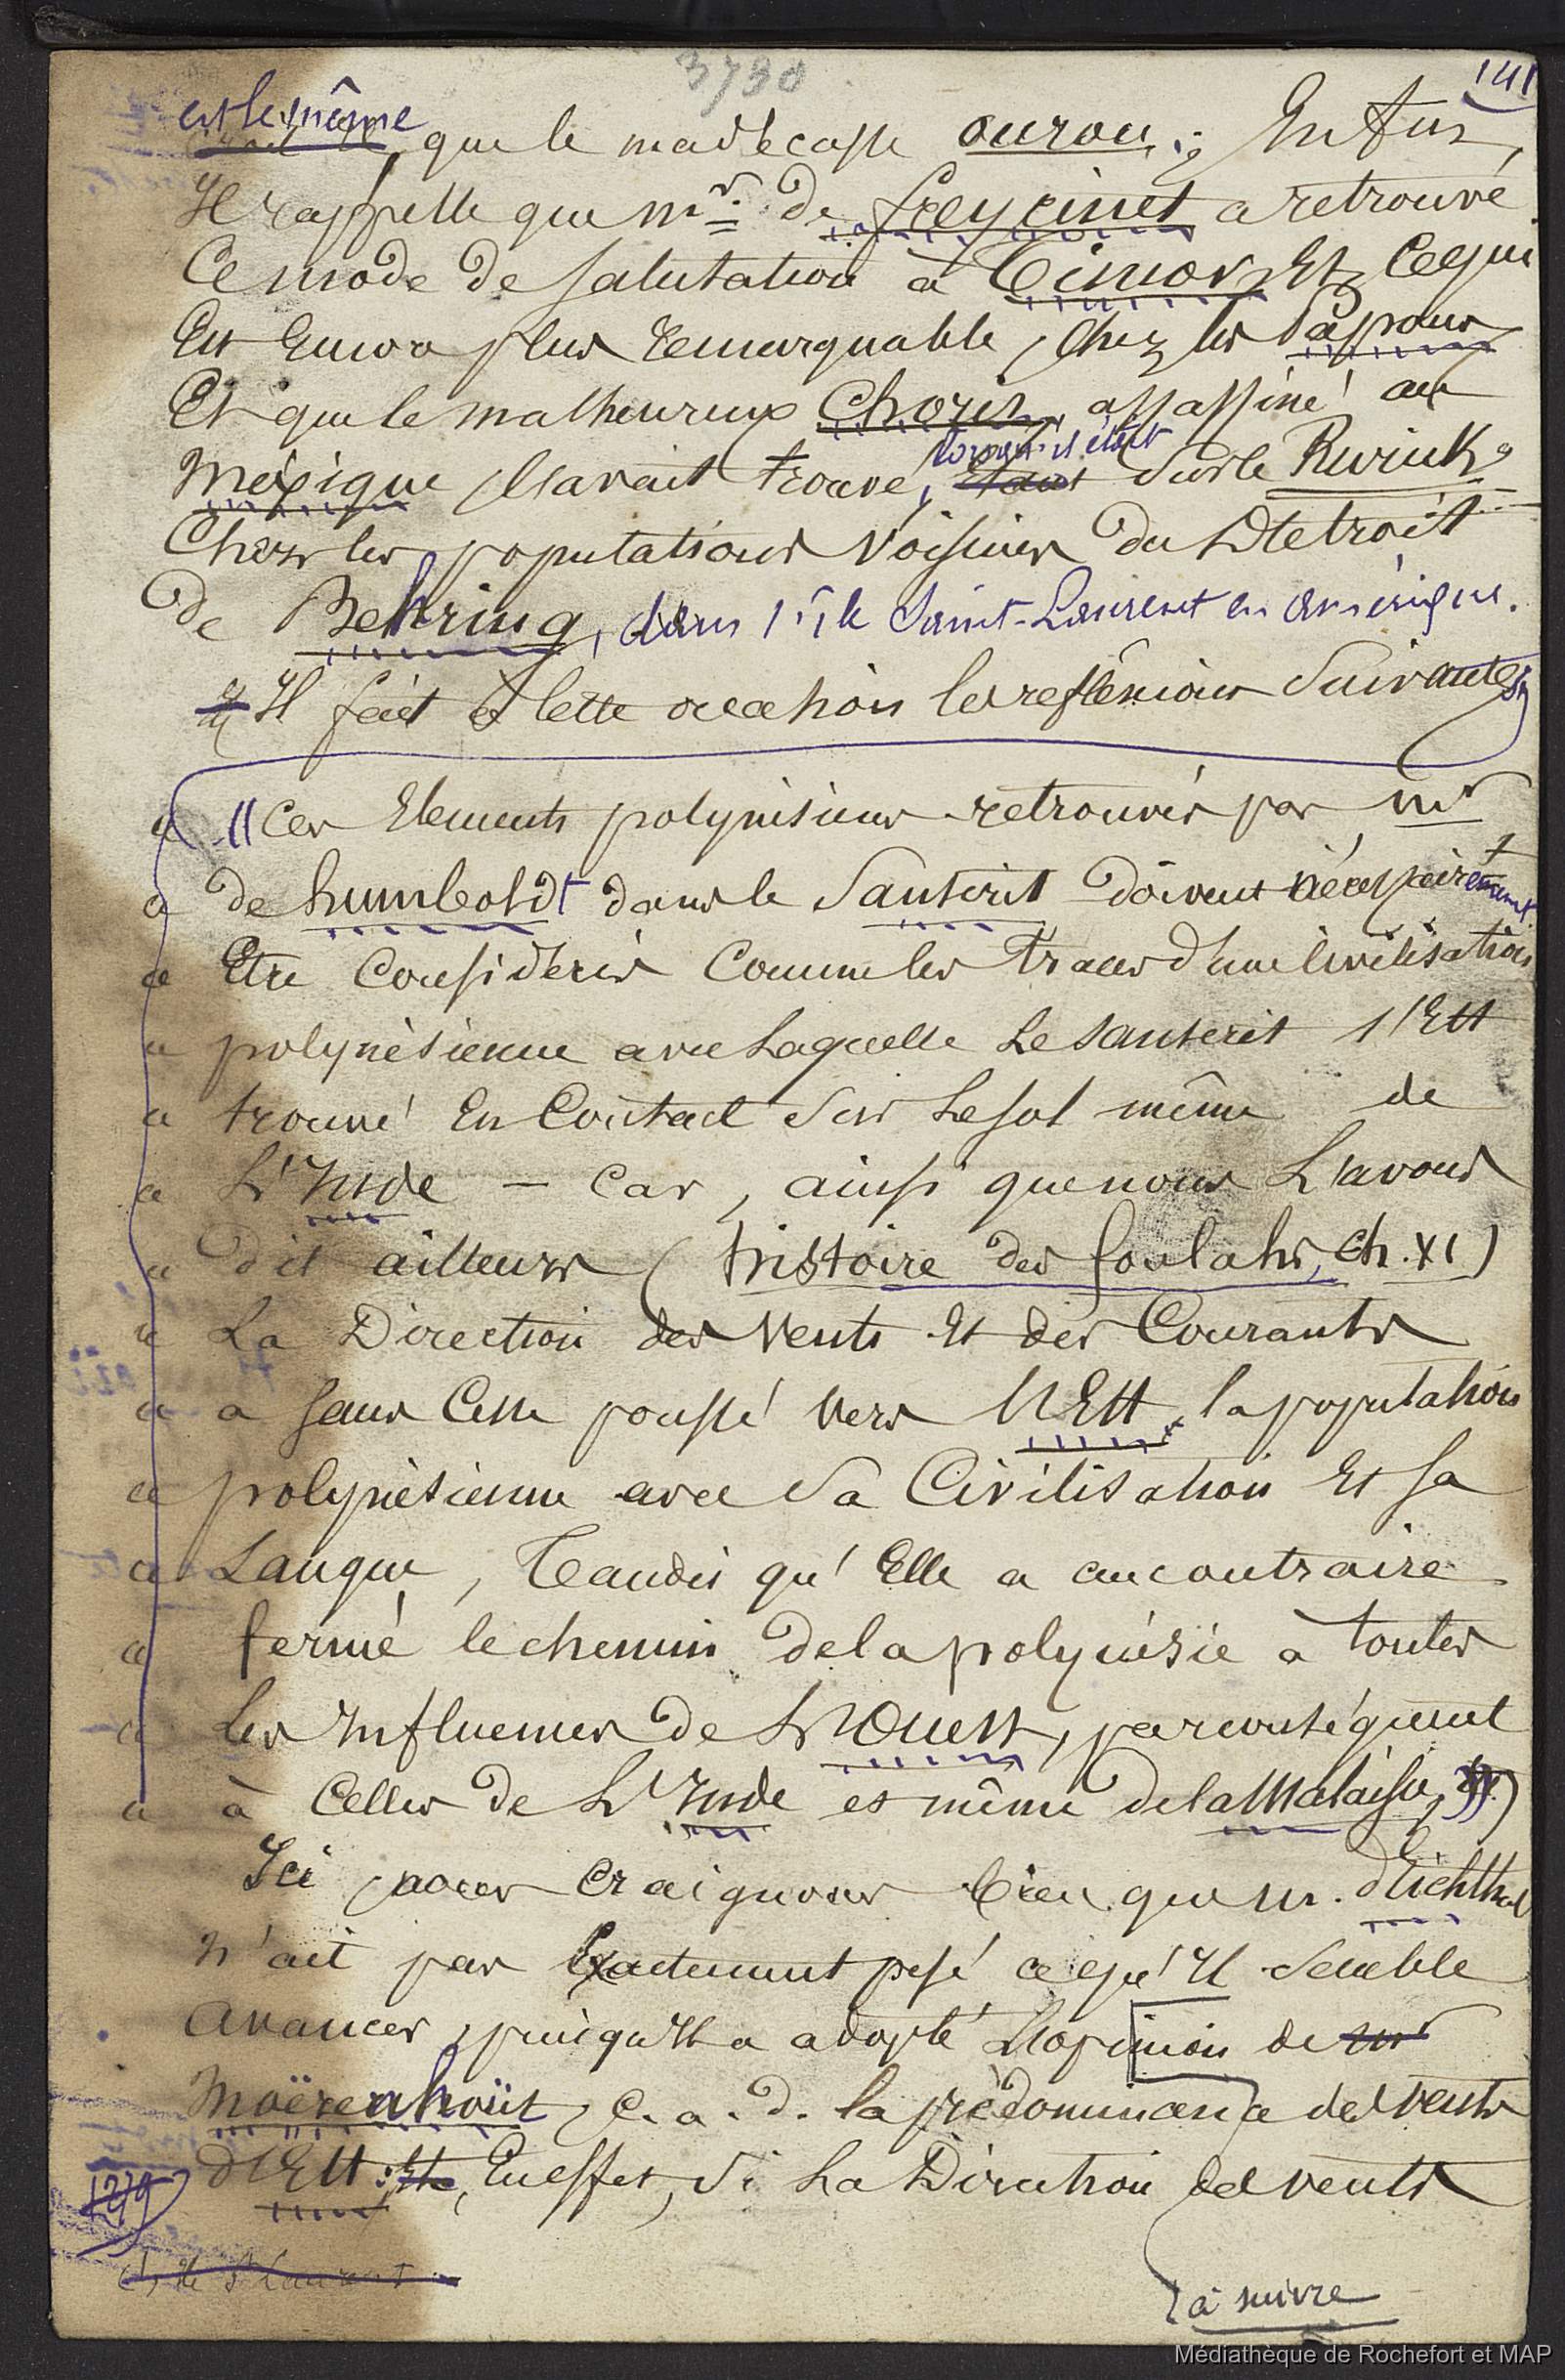 3790
141
est le même que le madécasse ourou ; Enfin,
Il rappelle que mr. de freycinet a retrouvé
Ce mode de salutation à Timor, Et, Ce qui
Est Encore plus remarquable, chez les Papous
Et que le malheureux Choris, assassiné au
Mexique, l'avait trouvé, lorsqu'il était sur le Rurick,
Chez les populations voisines du Détroit
de Behring, dans l'île Saint-Laurent en amérique.
Il fait à Cette occasion les reflexions Suivantes,
« "Ces Elements polynésiens retrouvés par mr
« de humboldt dans le Sanscrit doivent nécessairement
« Etre Considérés Comme les traces d'une Civilisation
« polynésienne avec Laquelle Le Sanscrit s'Est
« trouvé En Contact sur Le sol même de
« L'Inde – Car, ainsi que nous L'avons
« dit ailleurs (histoire des foulahs, ch. XI)
« La Direction des Vents Et des Courants
« a sans Cesse poussé vers l'Est, la population
« polynésienne avec sa Civilisation Et sa
« Langue, Tandis qu'Elle a au contraire
« fermé le chemin de la polynésie à toutes
« Les Influences de L'Ouest, par conséquent
« à Celles de L'Inde et même de la Malaisie, »)
Ici nous Craignons bien que m. d'Eichthal
n'ait pas Exactement pesé ce qu'Il semble
avancer, puisqu'Il a adopté L'opinion de mr
Moërenhoüt, C. a. d. la prédominance des vents
d'Est : En effet, si La Direction des vents
1279
île St Laurent
à suivre
Médiathèque de Rochefort et MAP